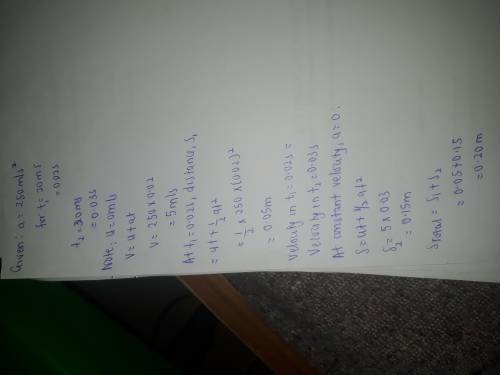 Given: a = 250m/s²
for t₁ = 20ms
= 0.02s
t₂ = 30ms
= 0.03s
Note; u = 0m/s
V = u + at
V = 250 x 0.02
= 5m/s
At t₁ = 0.02s, distance, S₁
= ut + ½ at²
= ½ x 250 x (0.02)²
= 0.05m
Velocity in t₁ = 0.02s =
Velocity in t₂ = 0.03s
At constant velocity, a = 0.
S = ut + ½ at²
S₂ = 5 x 0.03
= 0.15m
Stotal = S₁ + S₂
= 0.05 + 0.15
= 0.20m